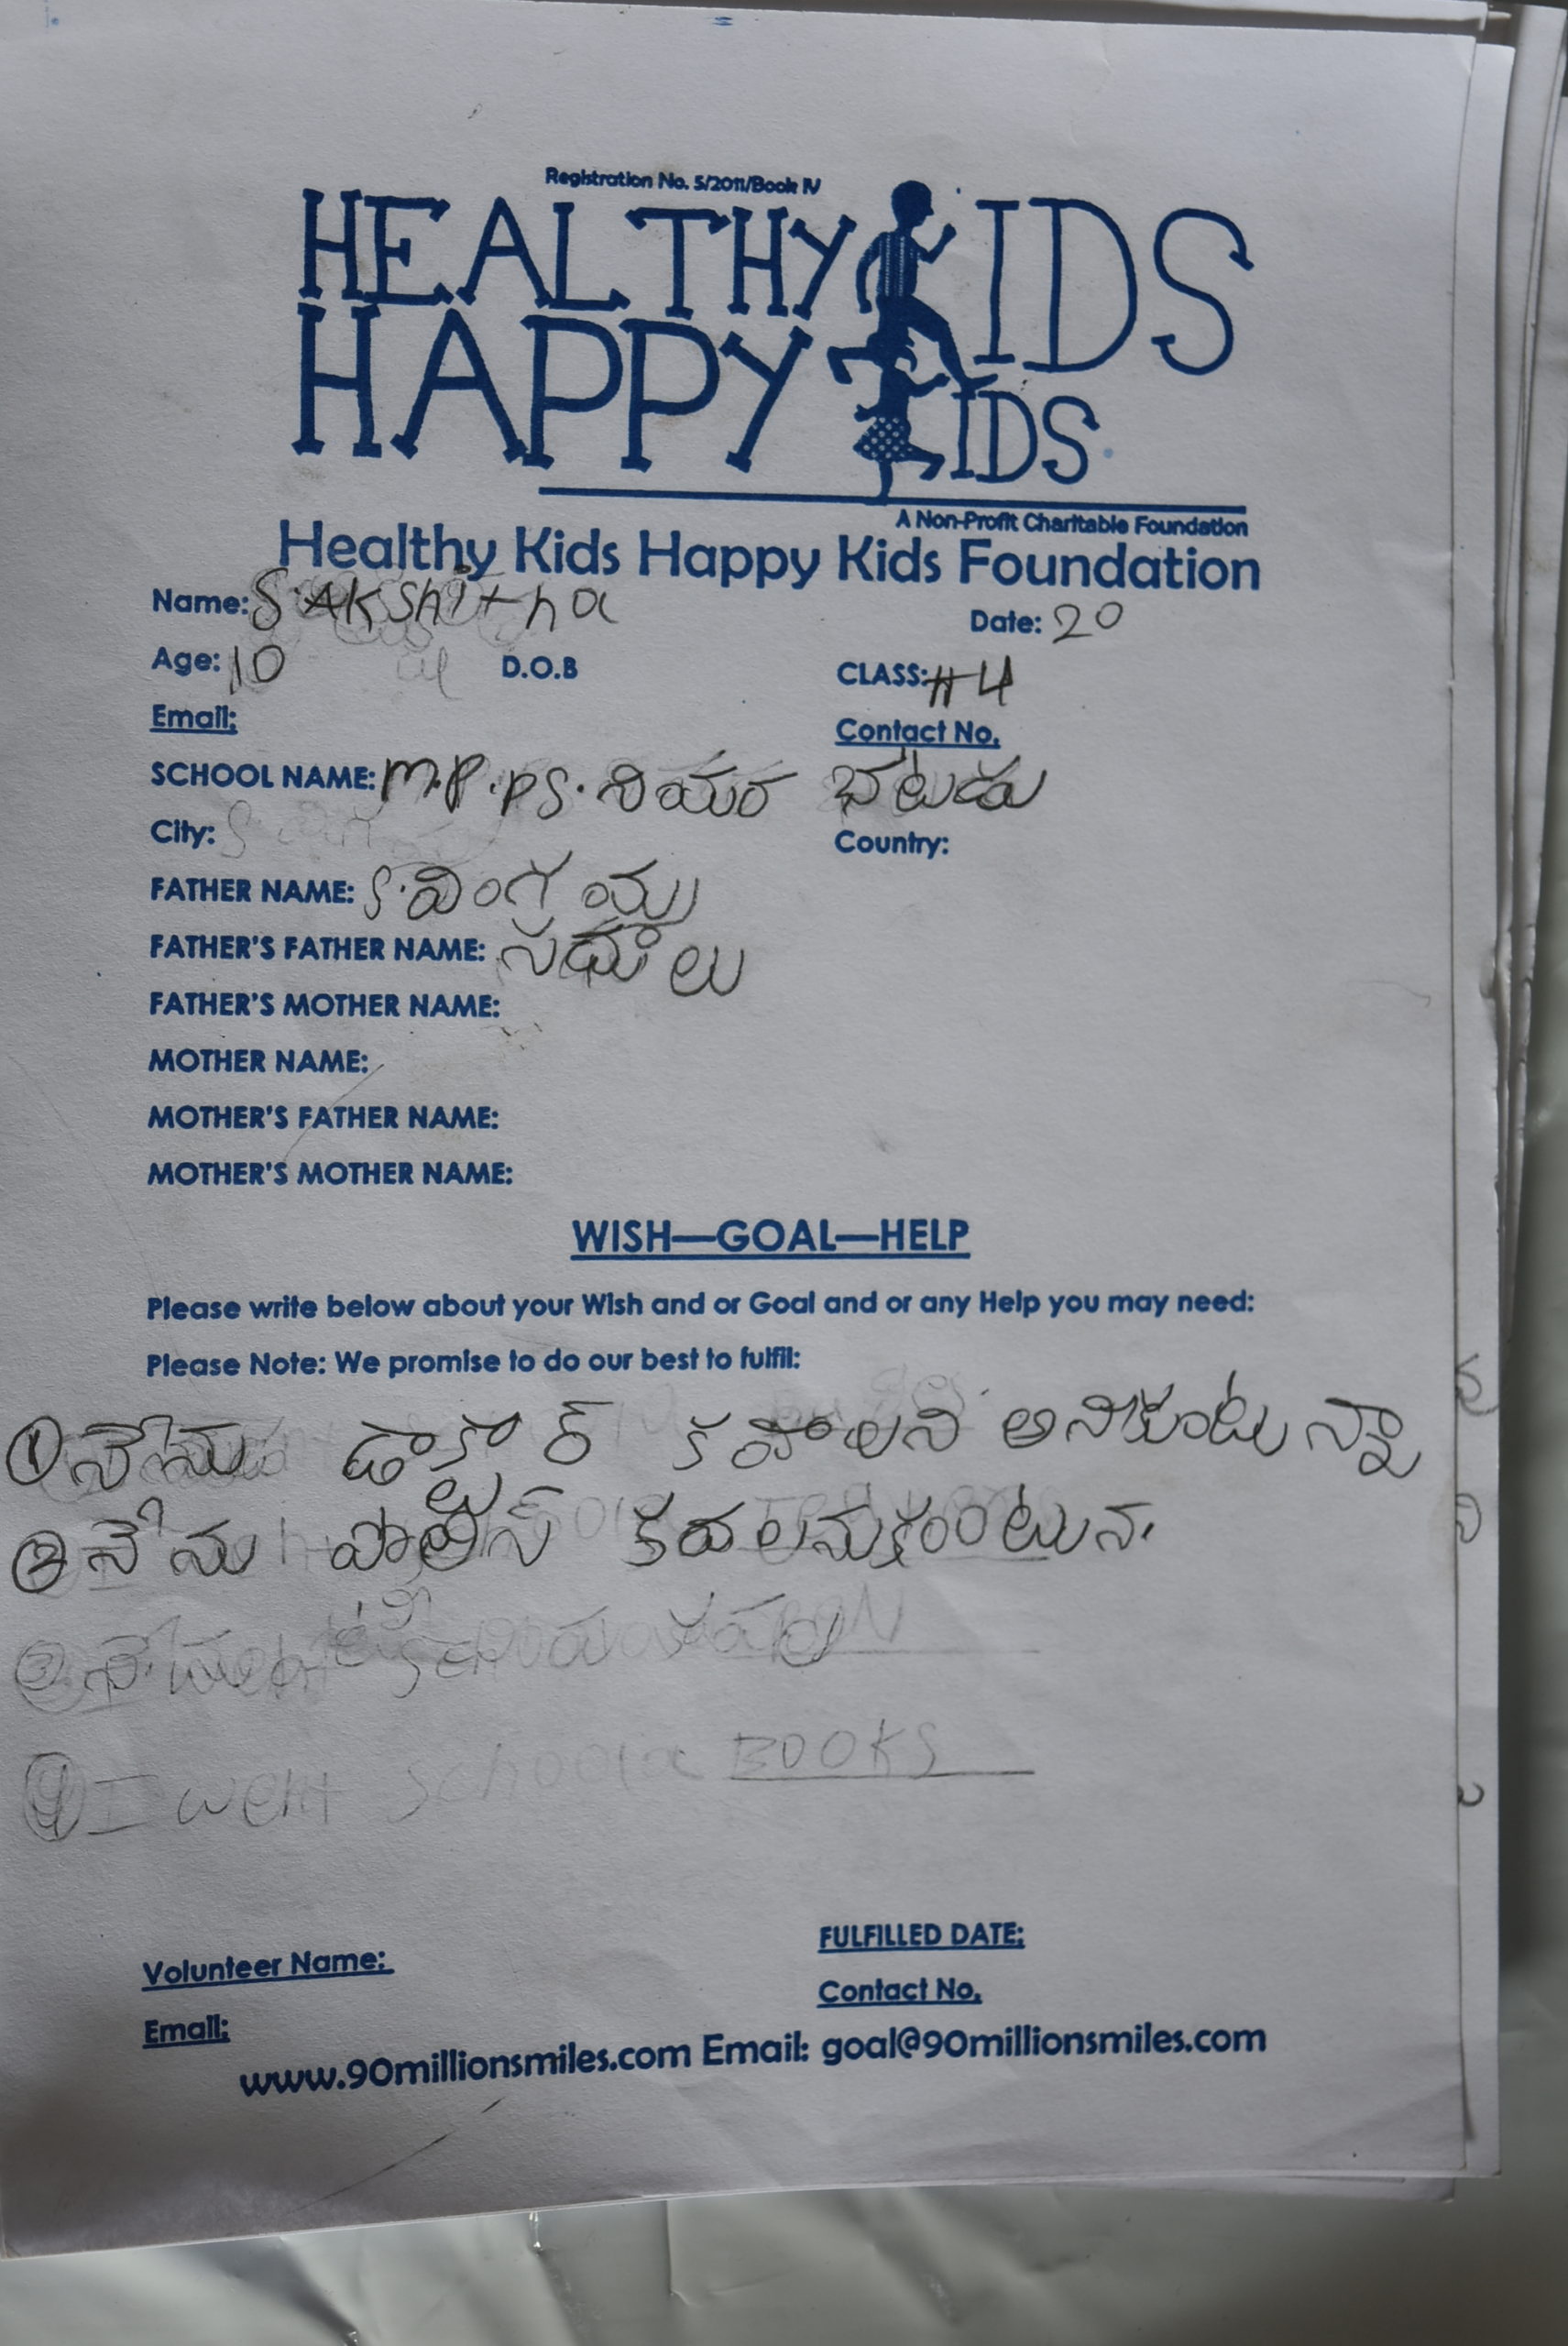 Registration No. 5/2011/Book IV
HEALTHY KIDS
HAPPY KIDS
A Non-Profit Charitable Foundation
Healthy Kids Happy Kids Foundation
Name: S. AKshitha
Date: 20
Age: 10 D.O.B
CLASS: 4
Email:
Contact No.
SCHOOL NAME: M.P.PS.
City:
Country:
FATHER NAME: S.
FATHER'S FATHER NAME:
FATHER'S MOTHER NAME:
MOTHER NAME:
MOTHER'S FATHER NAME:
MOTHER'S MOTHER NAME:
WISH—GOAL—HELP
Please write below about your Wish and or Goal and or any Help you may need:
Please Note: We promise to do our best to fulfil:
① నేను డాక్టర్ కవాలని అనికుంటున్నా
② నేను పొలిస్
③
④ I went School BOOKS
FULFILLED DATE:
Volunteer Name:
Contact No.
Email:
www.90millionsmiles.com Email: goal@90millionsmiles.com